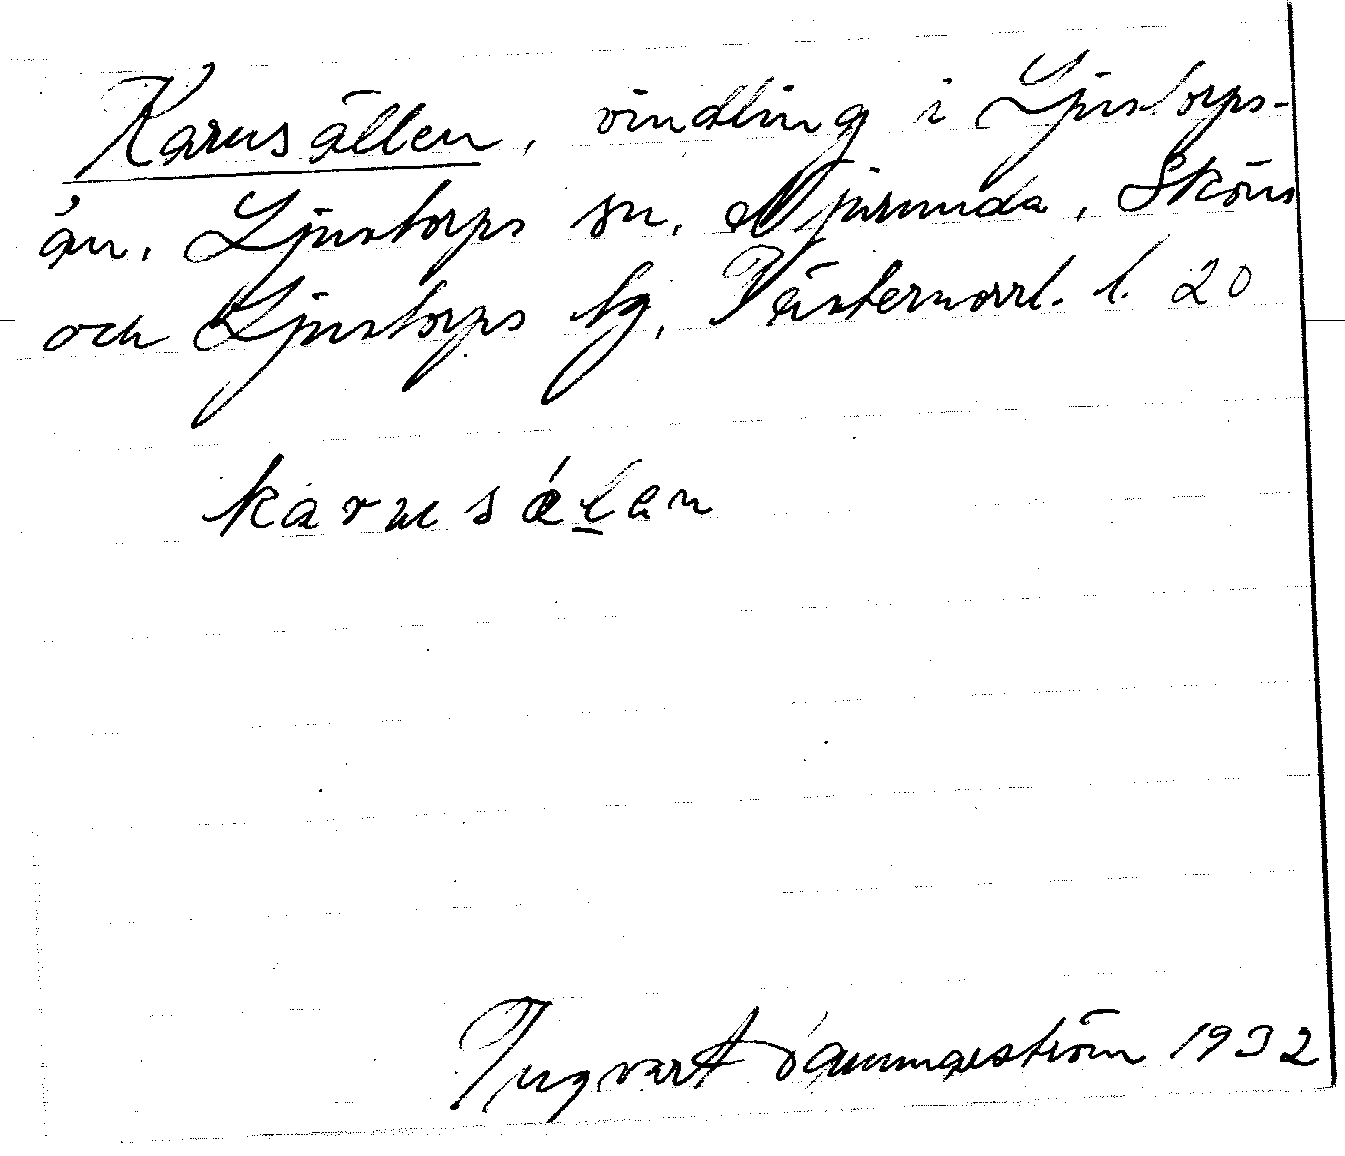 Karusällen, vindling i Ljustorps-
ån. Ljustorps sn. Njurunda, Sköns
och Ljustorps tg, Västernorrl. l. 20
karusälen
Ingvart 1932